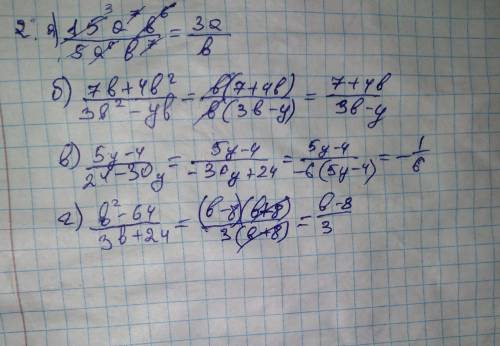 2. а) 15³a⁷b⁶ / 5a⁶b⁷ = 3a / b
б) 7b+4b² / 3b²-yb = b(7+4b) / b(3b-y) = 7+4b / 3b-y
в) 5y-4 / 24-30y = 5y-4 / -30y+24 = 5y-4 / -6(5y-4) = -1/6
г) b²-64 / 3b+24 = (b-8)(b+8) / 3(b+8) = b-8 / 3